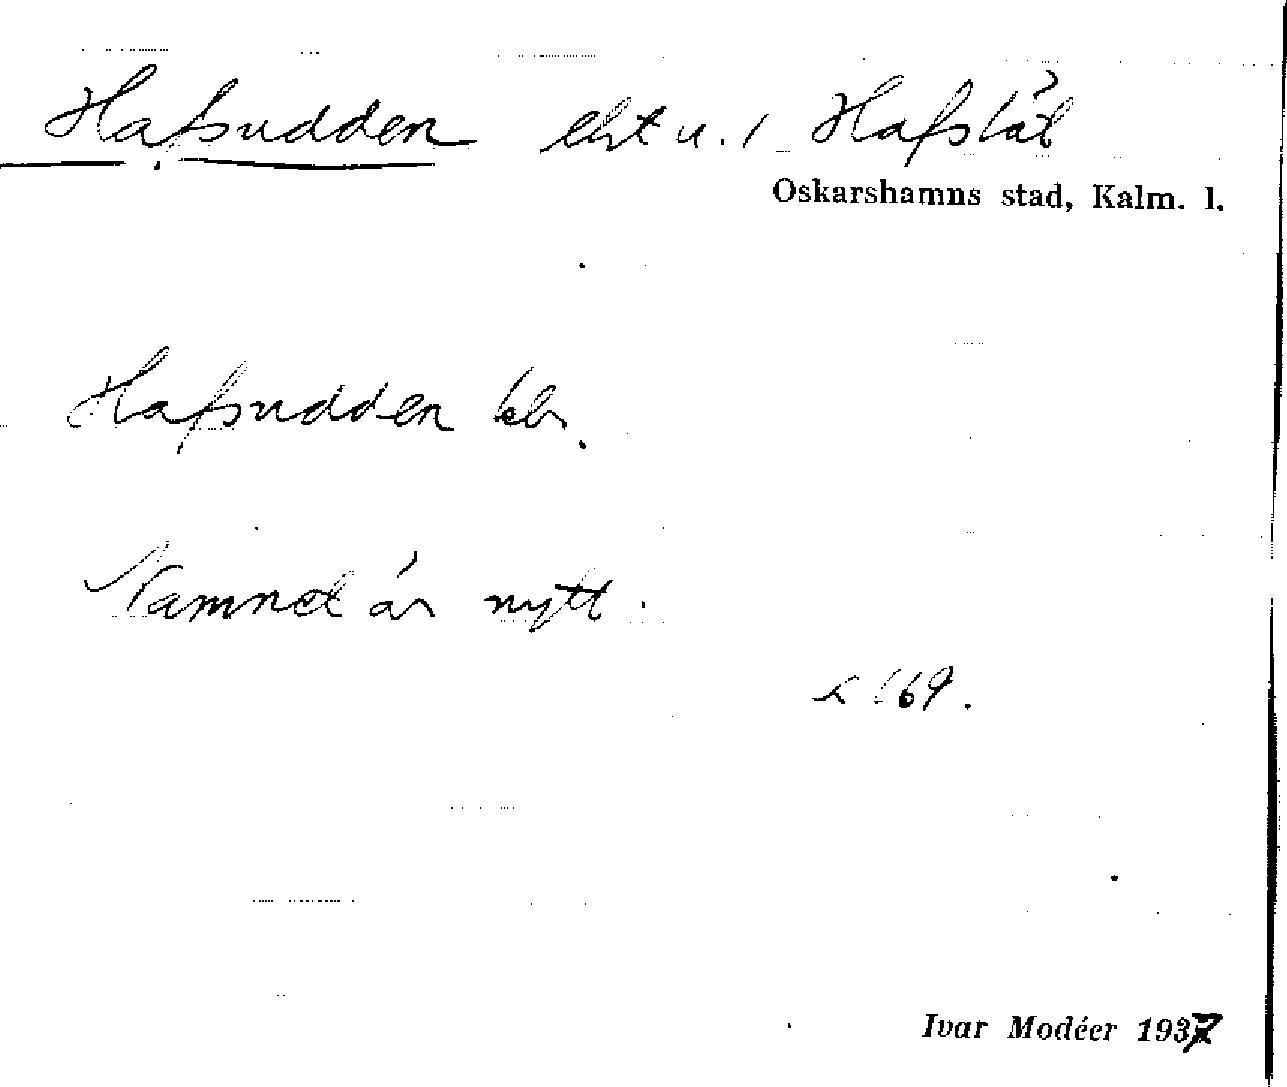 Hafsudden eht u. 1 Hafslät
Oskarshamns stad, Kalm. l.
Hafsudden
Namnet är nytt.
669.
Ivar Modéer 1937